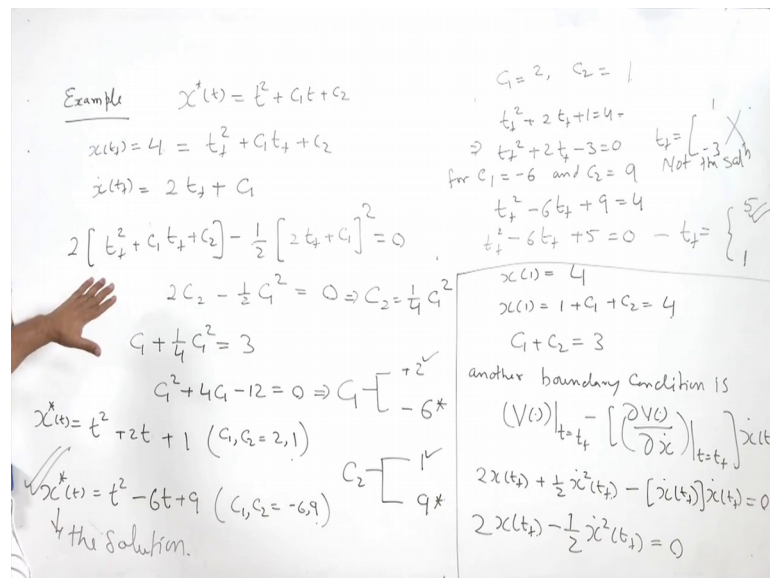 Example x*(t) = t² + C₁t + C₂
x(t_f) = 4 = t_f² + C₁t_f + C₂
ẋ(t_f) = 2t_f + C₁
2[t_f² + C₁t_f + C₂] - 1/2[2t_f + C₁]² = 0
2C₂ - 1/2 C₁² = 0 ⇒ C₂ = 1/4 C₁²
C₁ + 1/4 C₁² = 3
C₁² + 4C₁ - 12 = 0 ⇒ C₁ [ +2 ✓
-6*
x*(t) = t² + 2t + 1 (C₁, C₂ = 2, 1)
C₂ [ 1 ✓
9*
✓ x*(t) = t² - 6t + 9 (C₁, C₂ = -6, 9)
↓ the solution.
C₁ = 2, C₂ = 1
t_f² + 2t_f + 1 = 4
⇒ t_f² + 2t_f - 3 = 0 t_f = [ 1
-3 X
Not the solⁿ
for C₁ = -6 and C₂ = 9
t_f² - 6t_f + 9 = 4
t_f² - 6t_f + 5 = 0 - t_f = { 5 ✓
1
x(1) = 4
x(1) = 1 + C₁ + C₂ = 4
C₁ + C₂ = 3
another boundary condition is
(V(·))|t=t_f - [(∂V(·)/∂ẋ)|t=t_f] ẋ(t
2x(t_f) + 1/2 ẋ²(t_f) - [ẋ(t_f)]ẋ(t_f) = 0
2x(t_f) - 1/2 ẋ²(t_f) = 0